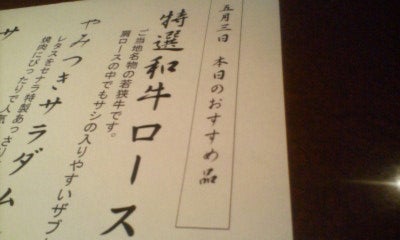 五月三日 本日のおすすめ品
特選和牛ロース
ご当地名物の若狭牛です。
肩ロースの中でもサシの入りやすいザブ
やみつきサラダム
レタスをセナラ特製あっさり
焼肉にぴったりで人気
サ